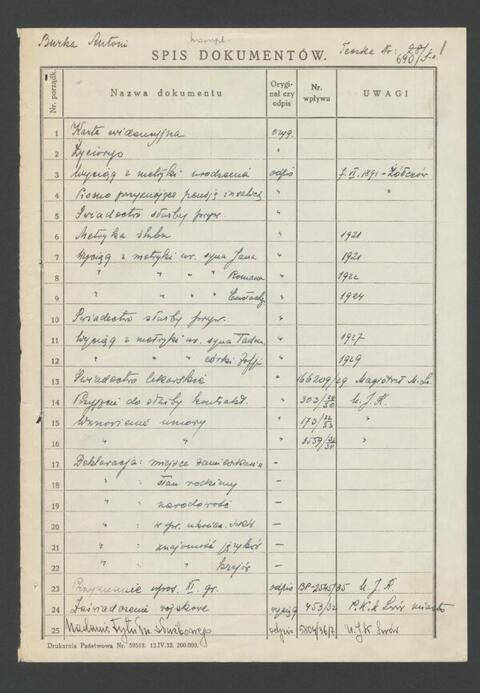 Burka Antoni
SPIS DOKUMENTÓW.
Teczka Nr: 690/
Nr. porządk.
Nazwa dokumentu
Orygi-
nał czy
odpis
Nr.
wpływu
UWAGI
1 Karta ewidencyjna oryg.
2 Życiorys "
3 Wyciąg z metryki urodzenia odpis 7. VI. 1891 - Żółczów
4 Pismo przyznające pensję inwalidz. " "
5 Świadectwo służby przyw. "
6 Metryka ślubu " 1921
7 Wyciąg z metryki ur. syna Jana " 1921
8 " " " " Romana " 1922
9 " " " " " 1924
10 Świadectwo służby przyw. "
11 Wyciąg z metryki ur. syna Tadeu. " 1927
12 " " " córki Zofji " 1929
13 Świadectwo lekarskie " 166209/29 Magistrat M. Lw.
14 Przyjęcie do służby kontrakt. " 303/ U. J. K.
15 Wznowienie umowy " 173/ "
16 " " " 3159/ "
17 Deklaracja: miejsce zamieszkania —
18 " : stan rodzinny —
19 " : narodowość —
20 " : —
21 " : znajomość języków —
22 " : krajów —
23 Przyznanie upos. XI. gr. odpis BP-2545/35 U. J. K.
24 Zaświadczenie wojskowe wyciąg 453/32 P.K.U. Lwów miasto
25 Nadanie tytułu służbowego odpis 5804/36/7 U.J.K. Lwów
Drukarnia Państwowa Nr. 59518. 12.IV.32. 200.000.